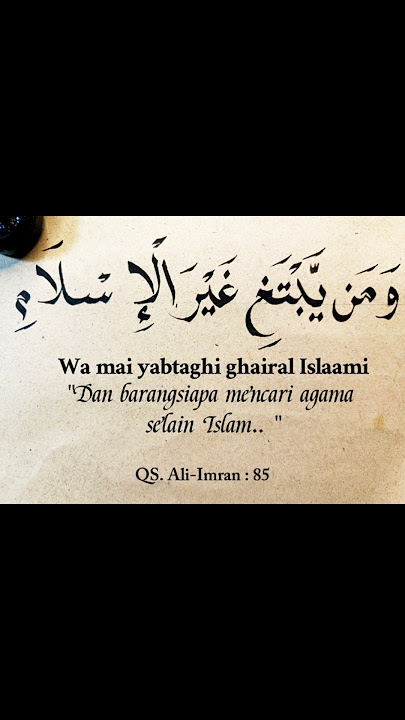 وَمَن يَّبْتَغِ غَيْرَ الْإِسْلَامِ
Wa mai yabtaghi ghairal Islaami
"Dan barangsiapa mencari agama
selain Islam.. "
QS. Ali-Imran : 85